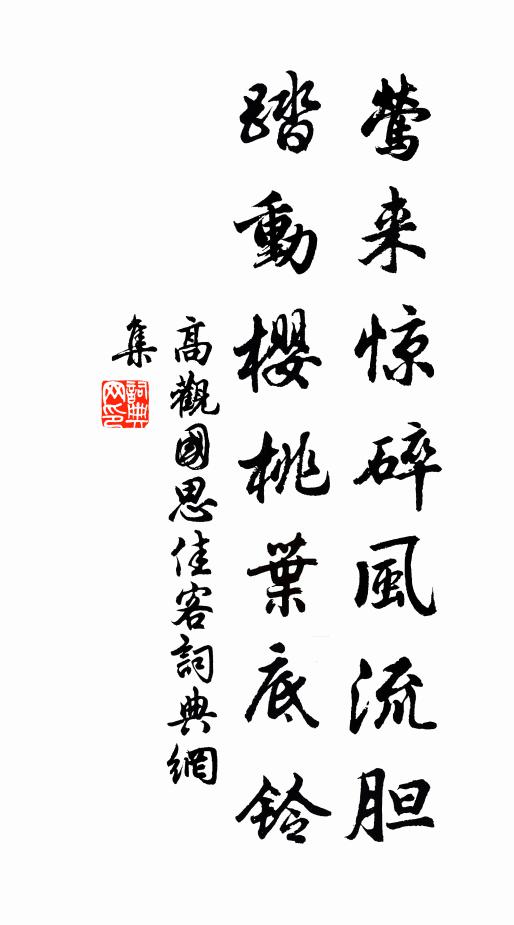 鶯来惊碎風流胆
踏動櫻桃葉底鈴
高觀國思佳客詞典網
集
詞典网印